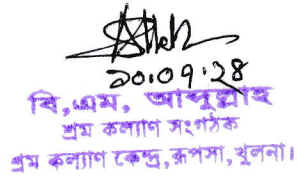 ২০.০৭.২৪
বি,এম, আব্দুল্লাহ
শ্রম কল্যাণ সংগঠক
শ্রম কল্যাণ কেন্দ্র, রূপসা, খুলনা।